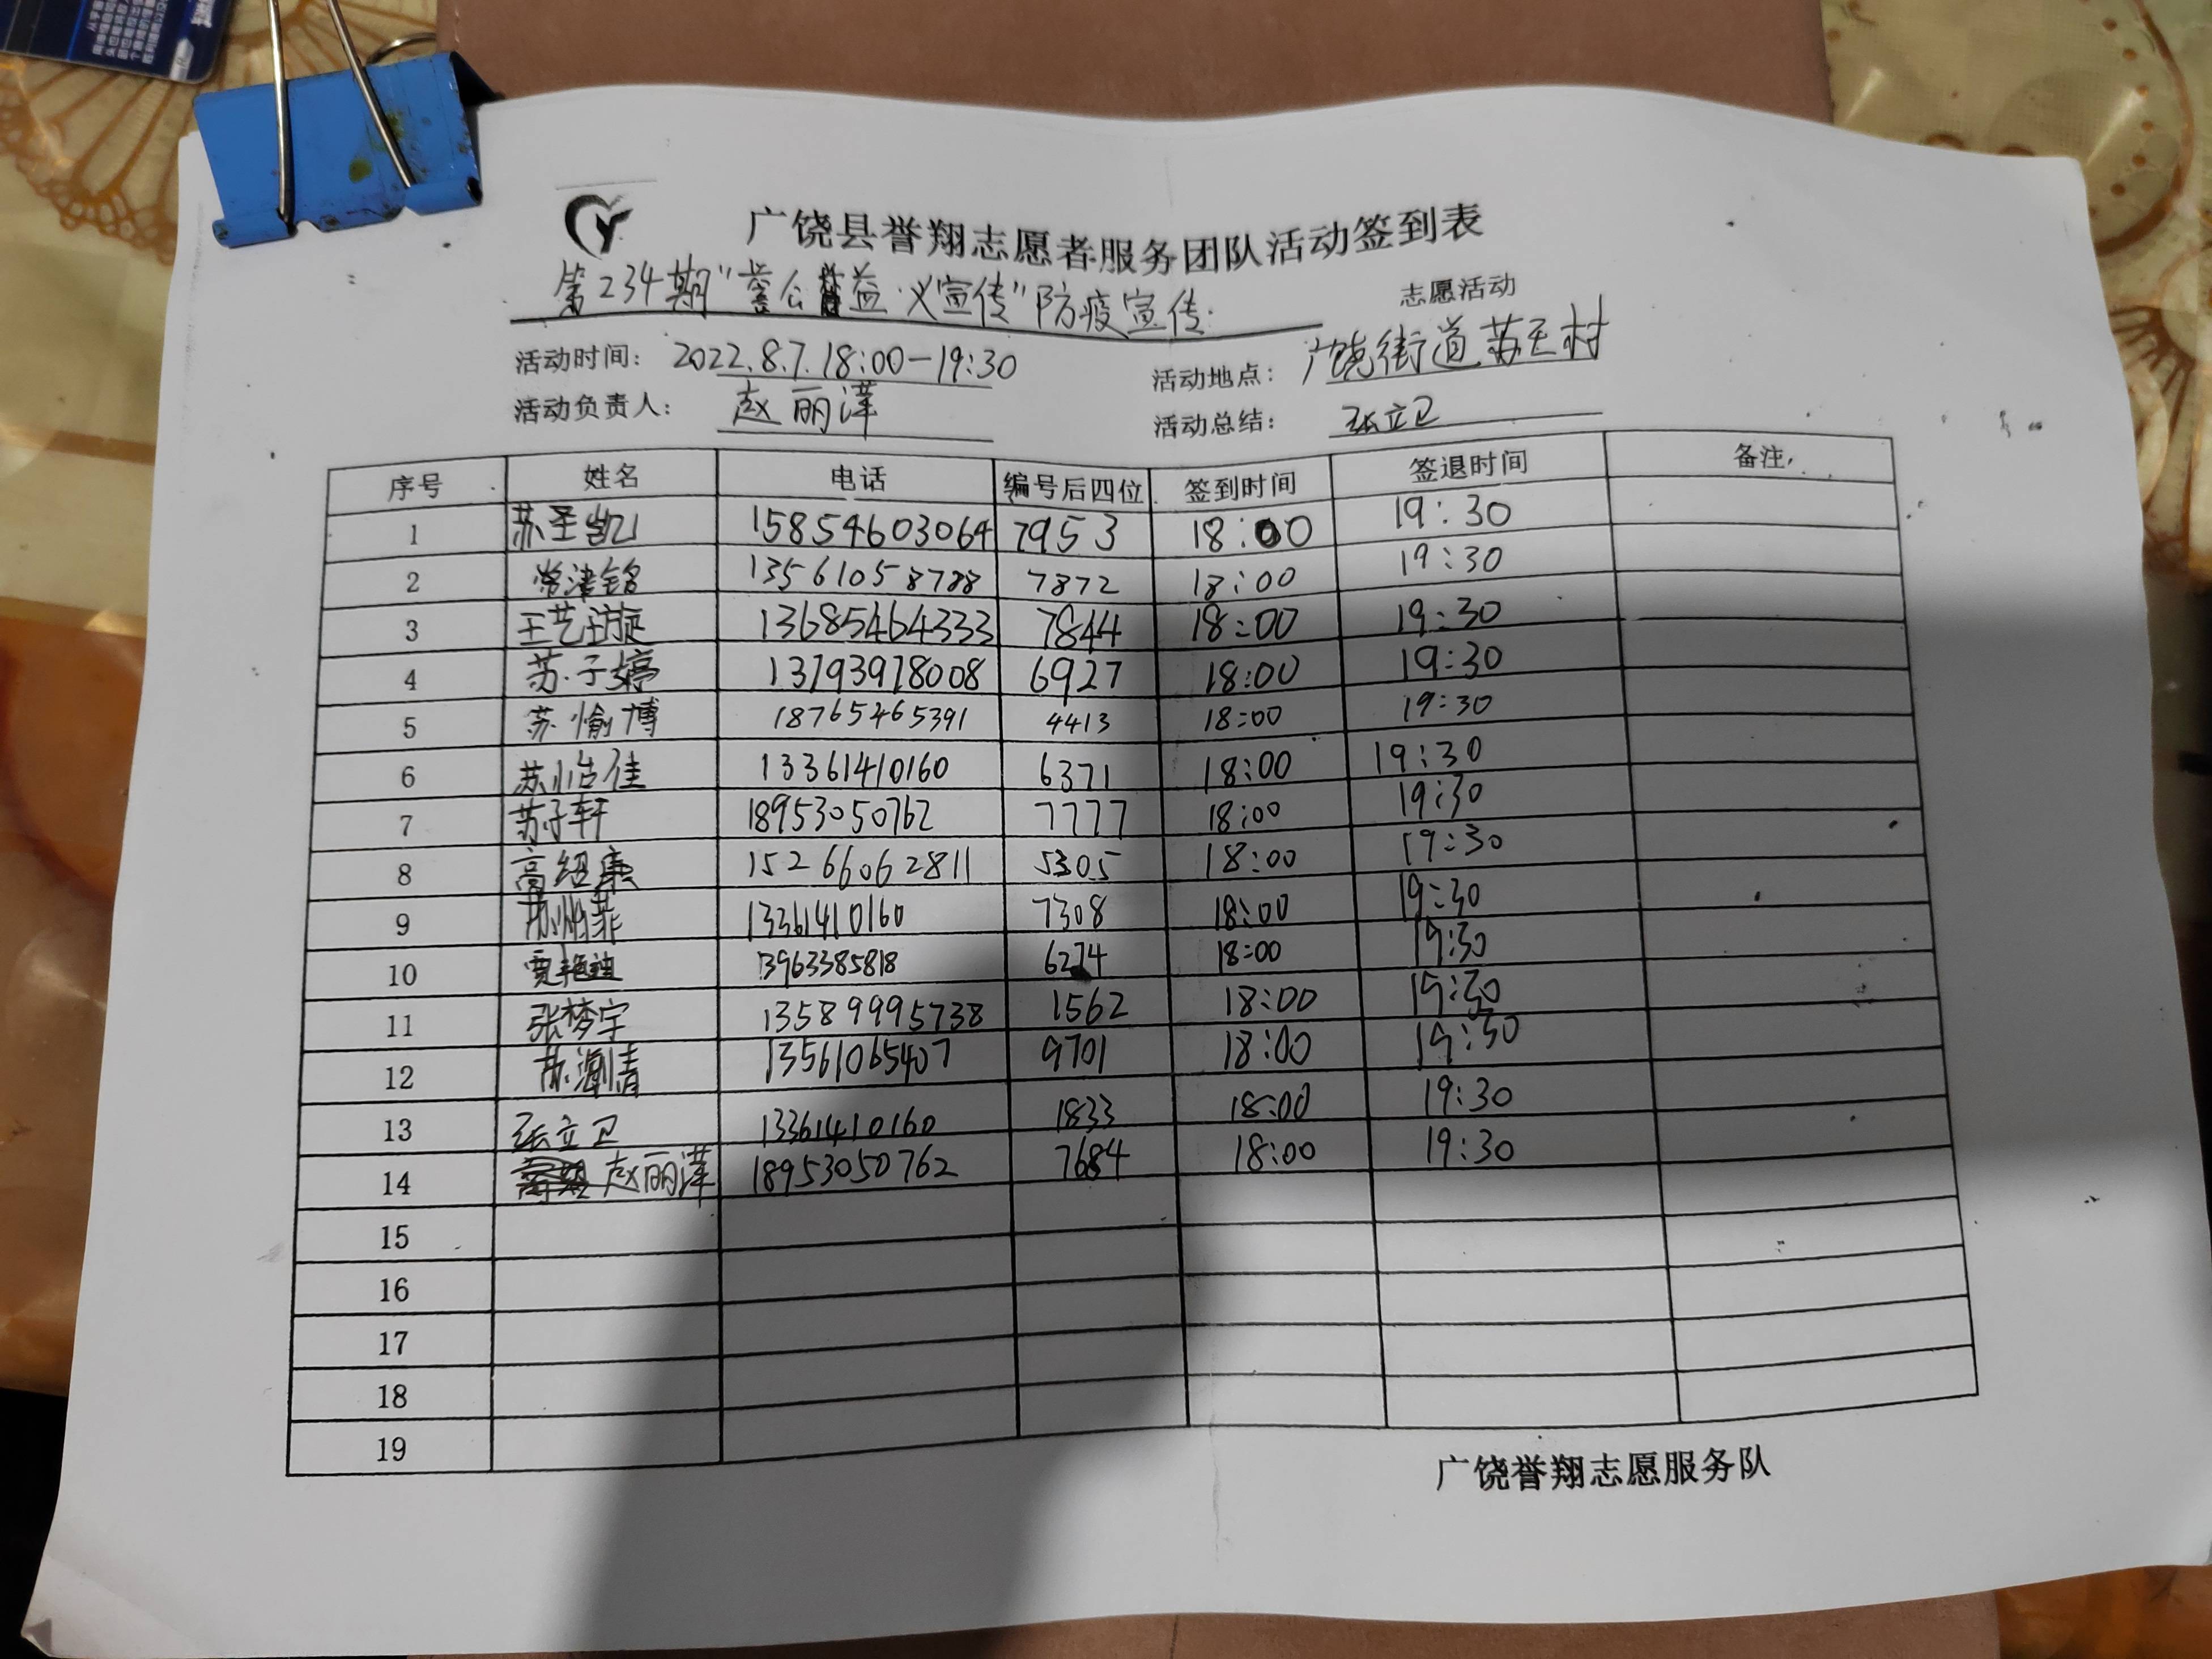 广饶县誉翔志愿者服务团队活动签到表
第234期"誉公益·义宣传"防疫宣传 志愿活动
活动时间: 2022.8.7.18:00-19:30 活动地点: 广饶街道苏王村
活动负责人: 赵丽萍 活动总结: 张立卫
序号 姓名 电话 编号后四位 签到时间 签退时间 备注
1 苏圣凯 15854603064 7953 18:00 19:30
2 常津铭 13561058788 7872 18:00 19:30
3 王艺璇 13685464333 7844 18:00 19:30
4 苏子婷 13793978008 6927 18:00 19:30
5 苏愉博 18765465391 4413 18:00 19:30
6 苏怡佳 13361410160 6371 18:00 19:30
7 苏子轩 18953050762 7777 18:00 19:30
8 高绍康 15266062811 5305 18:00 19:30
9 13361410160 7308 18:00 19:30
10 13963385818 18:00 19:30
11 张梦宇 13589995738 1562 18:00 19:30
12 13561065407 9701 18:00 19:30
13 张立卫 13361410160 1833 18:00 19:30
14 赵丽萍 18953050762 7684 18:00 19:30
15
16
17
18
19
广饶誉翔志愿服务队